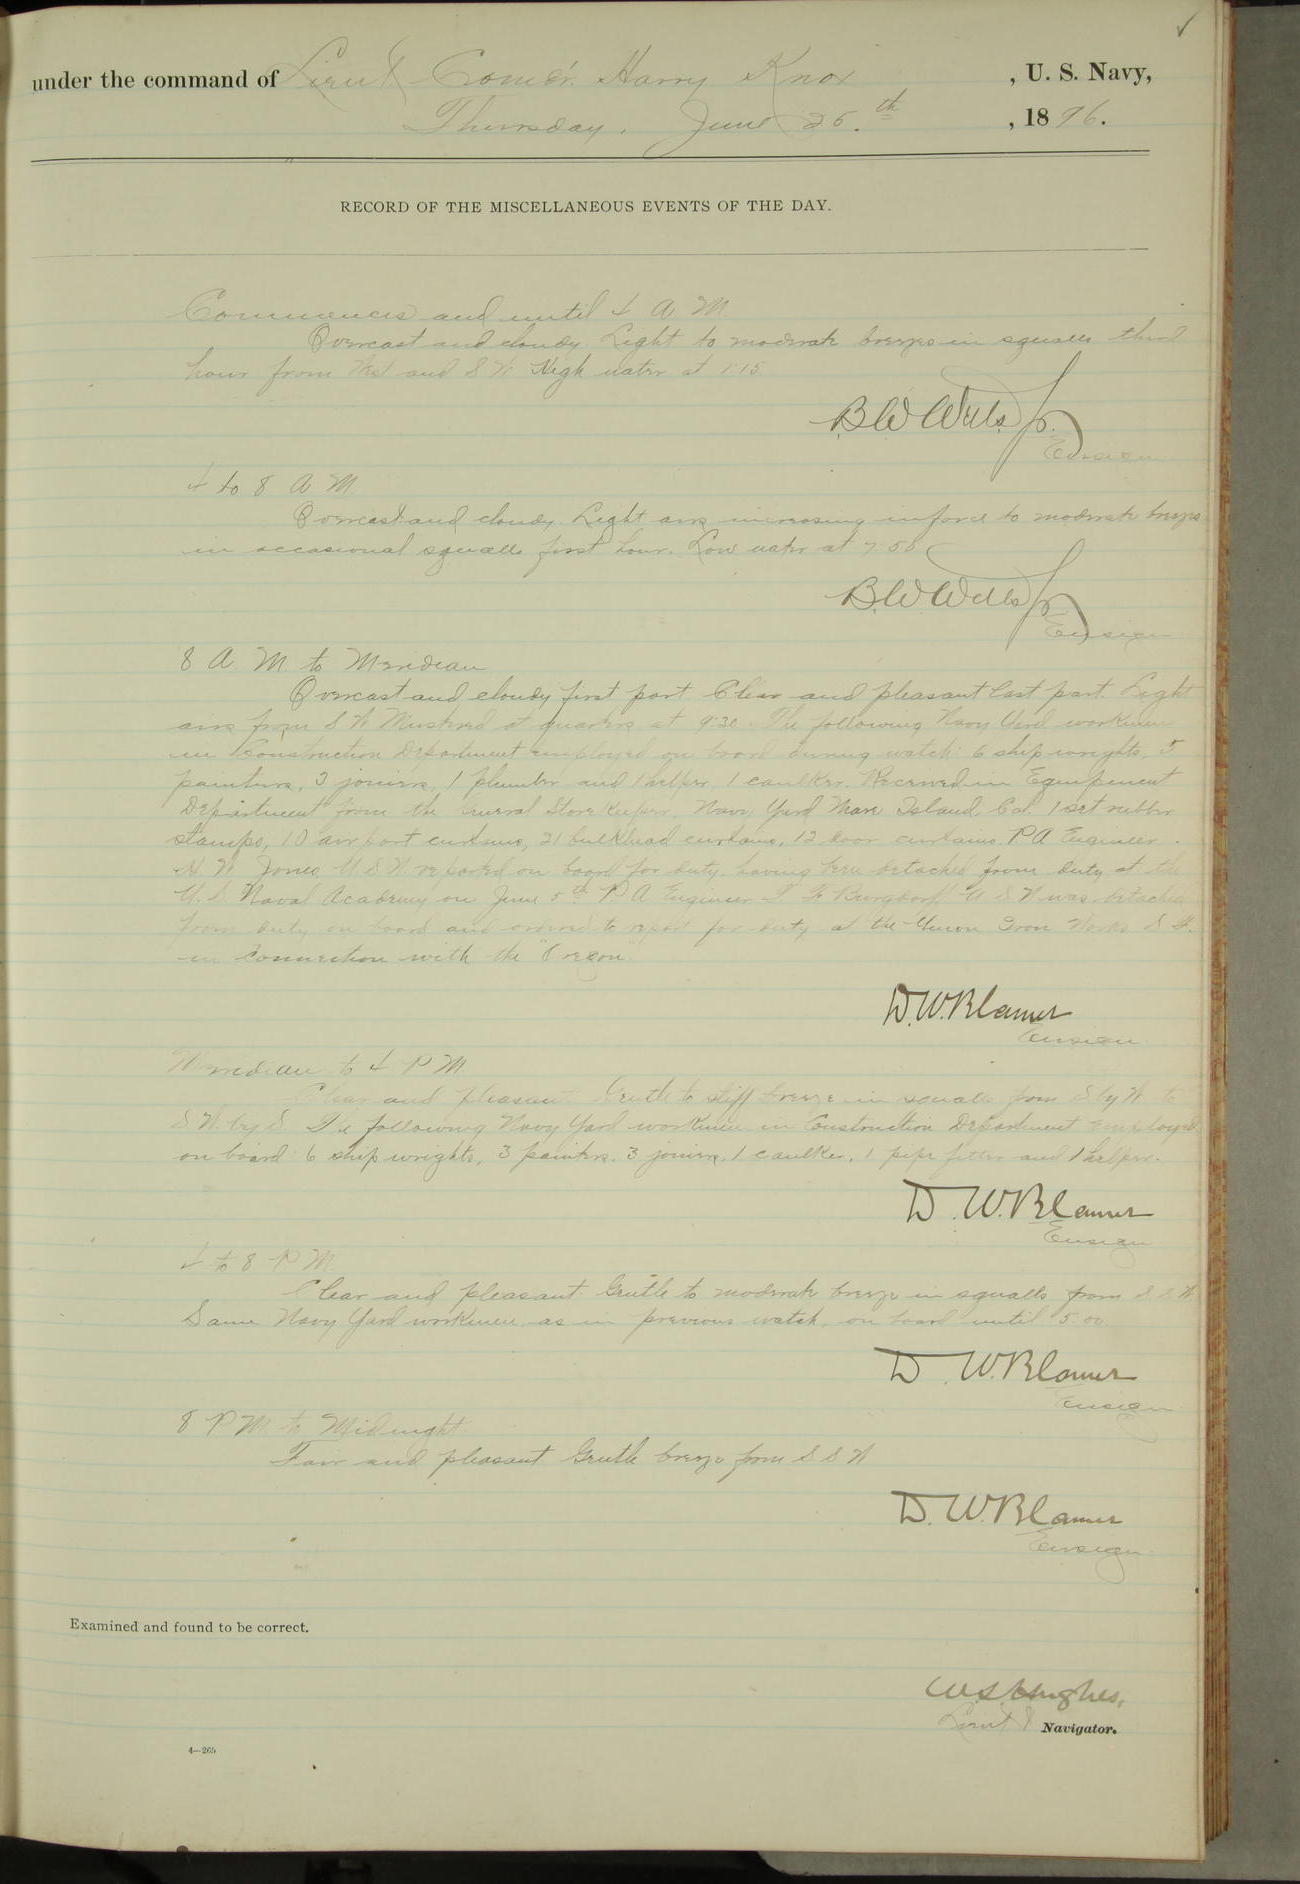 ✓
under the command of Lieut Comd'r. Harry Knox, U. S. Navy,
Thursday, June 25.th, 1896.
RECORD OF THE MISCELLANEOUS EVENTS OF THE DAY.
Commences and until 4 A M
Overcast and cloudy. Light to moderate breezes in squalls third
hour from West and S W High water at 1:15
B W Wells Jr.
Ensign
4 to 8 A M
Overcast and cloudy. Light airs increasing in force to moderate breezes
in occasional squalls first hour. Low water at 7.55
B. W Wells Jr
Ensign
8 A M to Meridian
Overcast and cloudy first part Clear and pleasant last part. Light
airs from S W Mustered at quarters at 9:30. The following Navy Yard workmen
in Construction Department employed on board during watch: 6 ship wrights, 5
painters, 3 joiners, 1 plumber and 1 helper, 1 caulker. Received in Equipment
Department from the General Store Keeper, Navy Yard Mare Island, Cal. 1 set rubber
stamps, 10 air port curtains, 21 bulkhead curtains, 12 door curtains. P A Engineer
H. W. Jones, U S N reported on board for duty, having been detached from duty at the
U. S. Naval Academy on June 5th. P. A Engineer T F Burgdorf U S N was detached
from duty on board and ordered to report for duty at the Union Iron Works S F.
in connection with the "Oregon"
D. W. Blamer
Ensign
Meridian to 4 P M
Clear and pleasant Gentle to stiff breeze in squalls from S by W to
S W. by S. The following Navy Yard workmen in Construction Department employed
on board: 6 ship wrights, 3 painters, 3 joiners, 1 caulker, 1 pipe fitter and 1 helper.
D. W. Blamer
Ensign
4 to 8 P M
Clear and pleasant Gentle to moderate breeze in squalls from S S W
Same Navy Yard workmen as in previous watch, on board until 5.00
D. W. Blamer
Ensign
8 P M to Midnight
Fair and pleasant Gentle breeze from S S W
D. W. Blamer
Ensign
Examined and found to be correct.
W. S. Hughes,
Lieut Navigator.
4—265